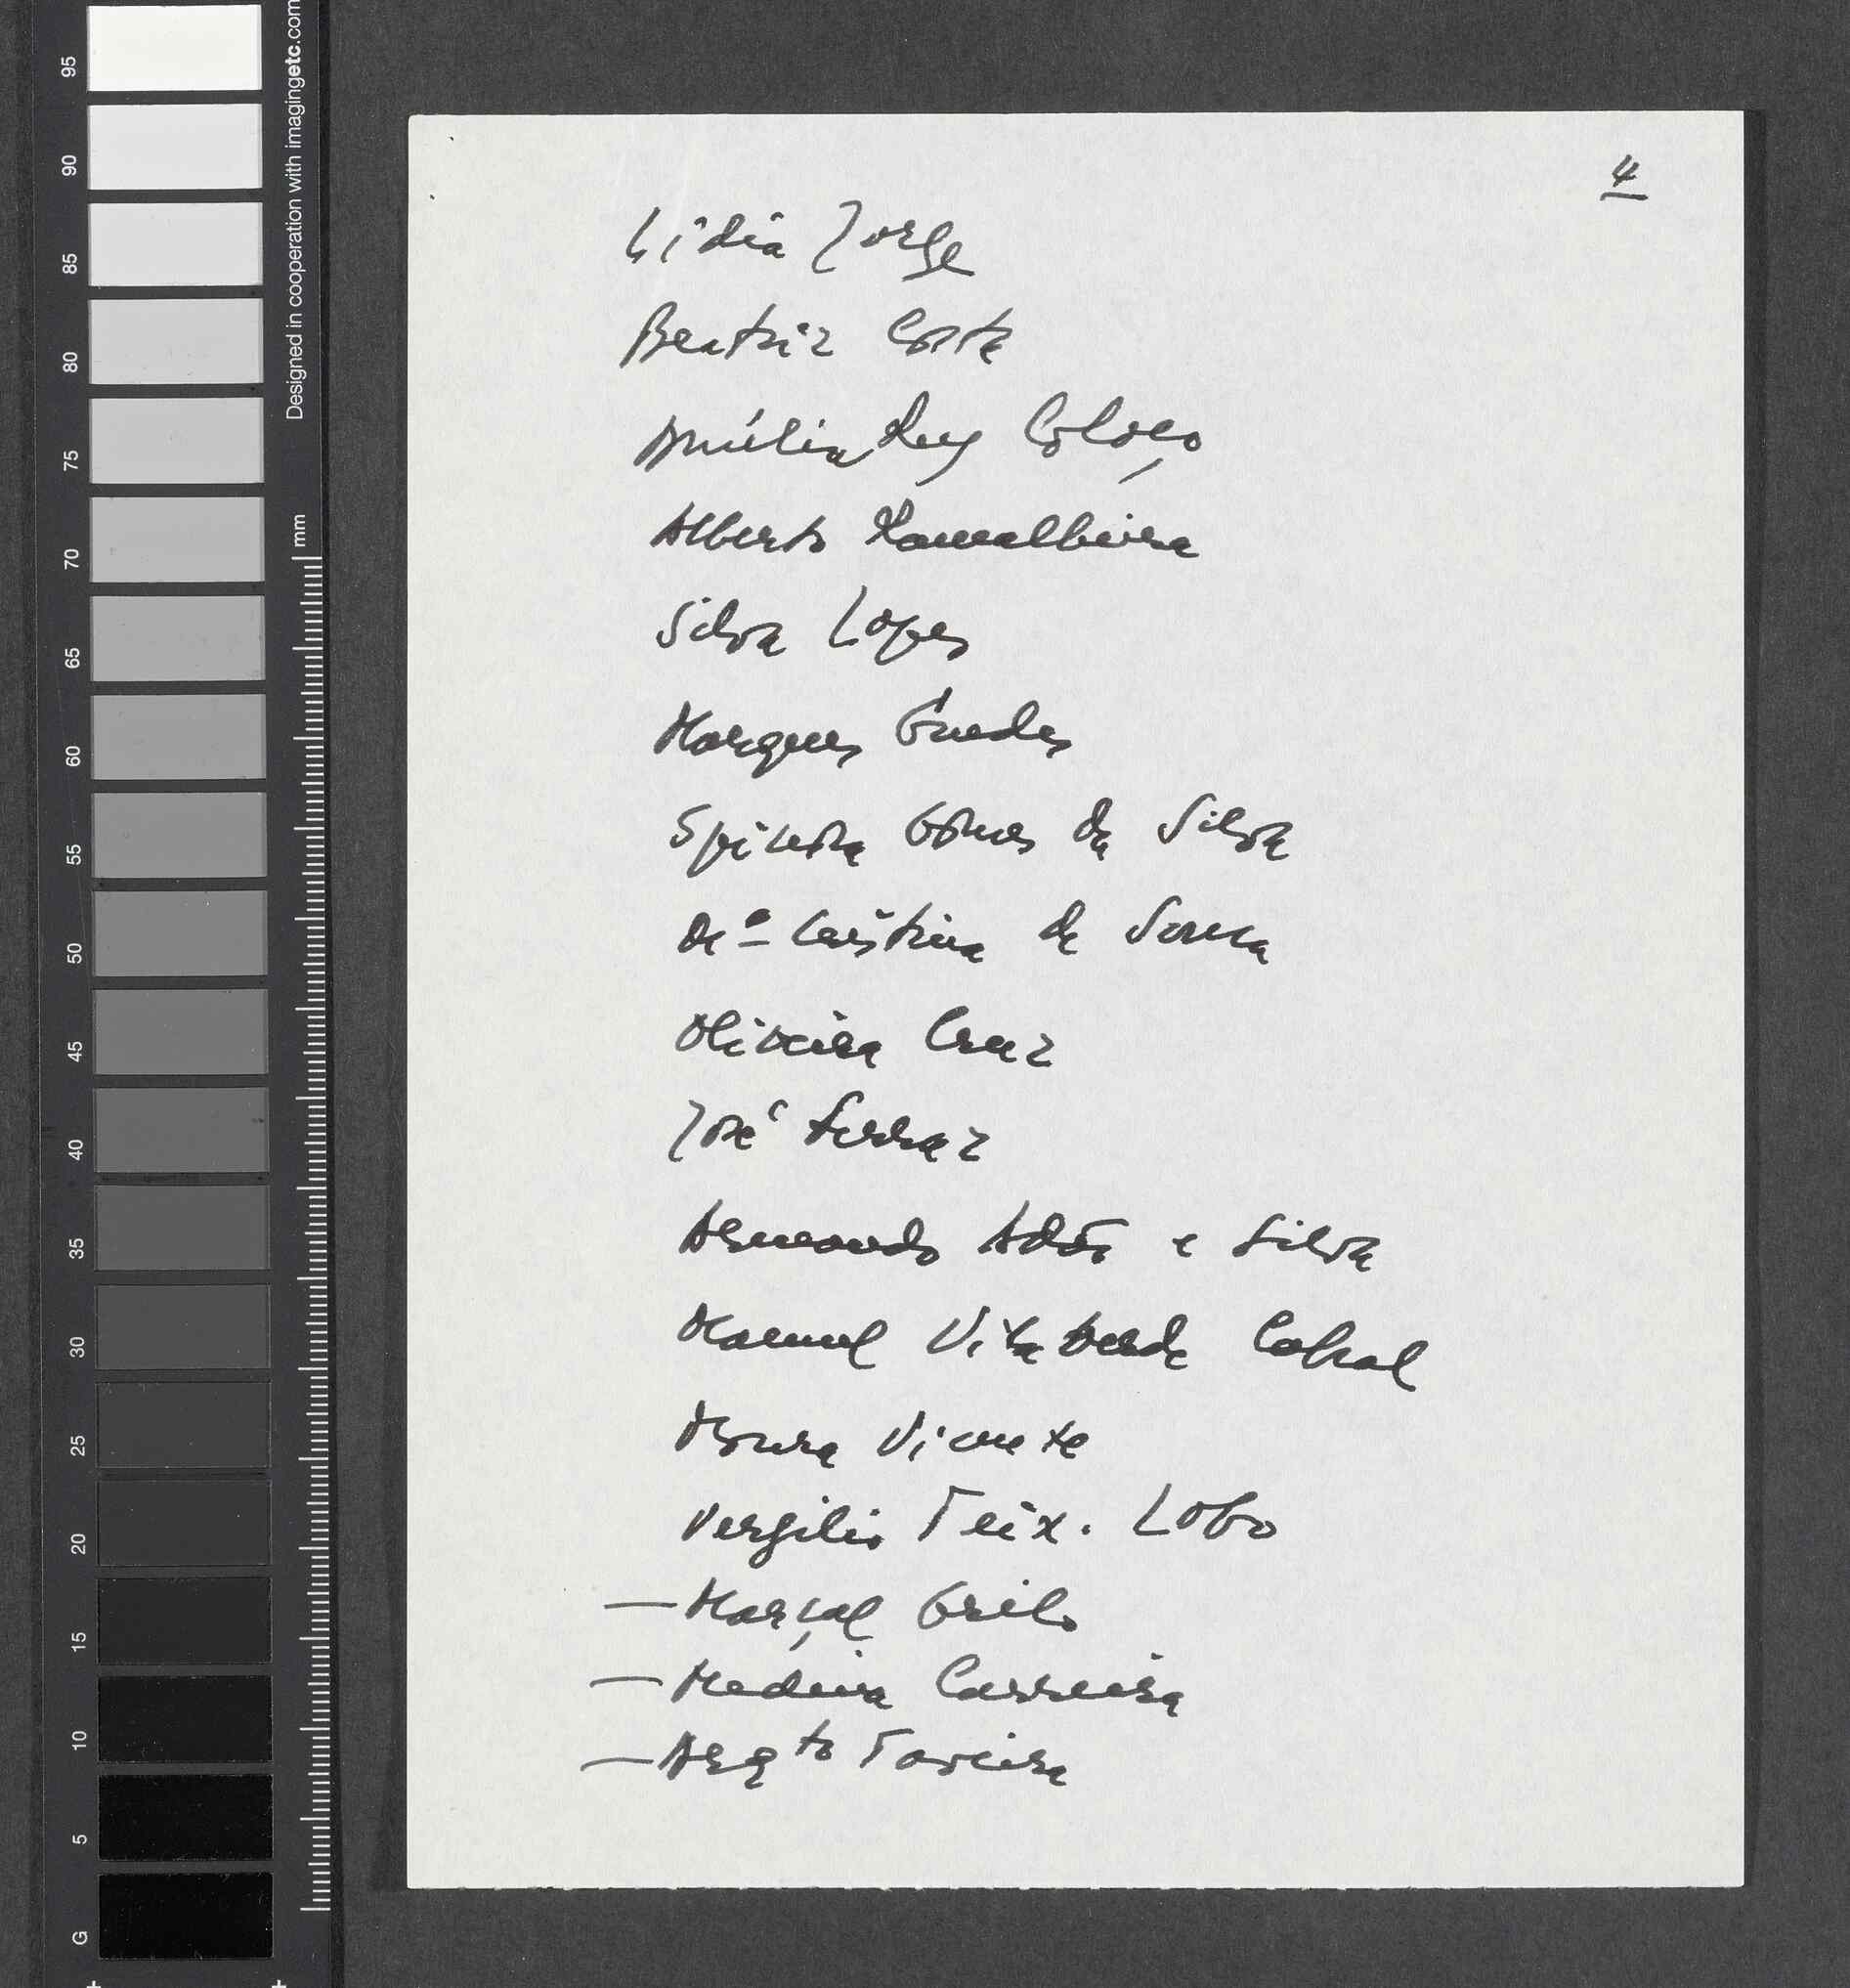 4
Lídia Jorge
Beatriz Costa
Amélia Rey Colaço
Alberto Ramalheira
Silva Lopes
Marques Guedes
Spínola Gomes da Silva
Drª Cristina de Sousa
Oliveira Cruz
José Ferraz
Armando Adão e Silva
Manuel Vila Verde Cabral
Moura Vicente
Vergilio Teix. Lobo
— Marçal Grilo
— Medina Carreira
— Arqto Taveira
Designed in cooperation with imagingetc.com
mm
95
90
85
80
75
70
65
60
55
50
45
40
35
30
25
20
15
10
5
G